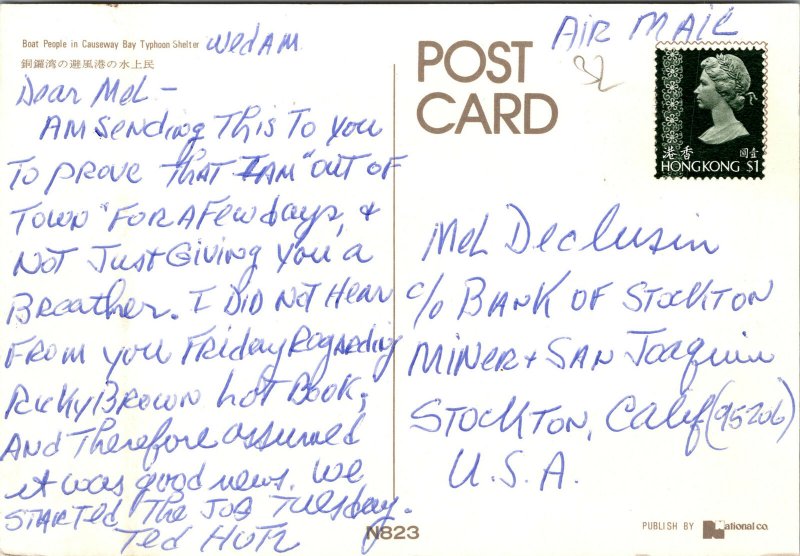 Boat People in Causeway Bay Typhoon Shelter
銅鑼湾の避風港の水上民
Wed AM
Dear Mel -
AM Sending This To you
To prove that I AM "out of
Town" For A Few days, &
Not Just Giving you a
Breather. I Did Not Hear
From you Friday Regarding
Ricky Brown hot Book,
And Therefore assumed
it was good news. We
STARTed The Job Tuesday.
Ted
POST
CARD
AIR MAIL
香港 壹圓
HONG KONG $1
Mel Declusin
c/o BANK OF STOCKTON
MINER + SAN Joaquin
STOCKTON, Calif (95206)
U.S.A.
N823
PUBLISH BY National co.